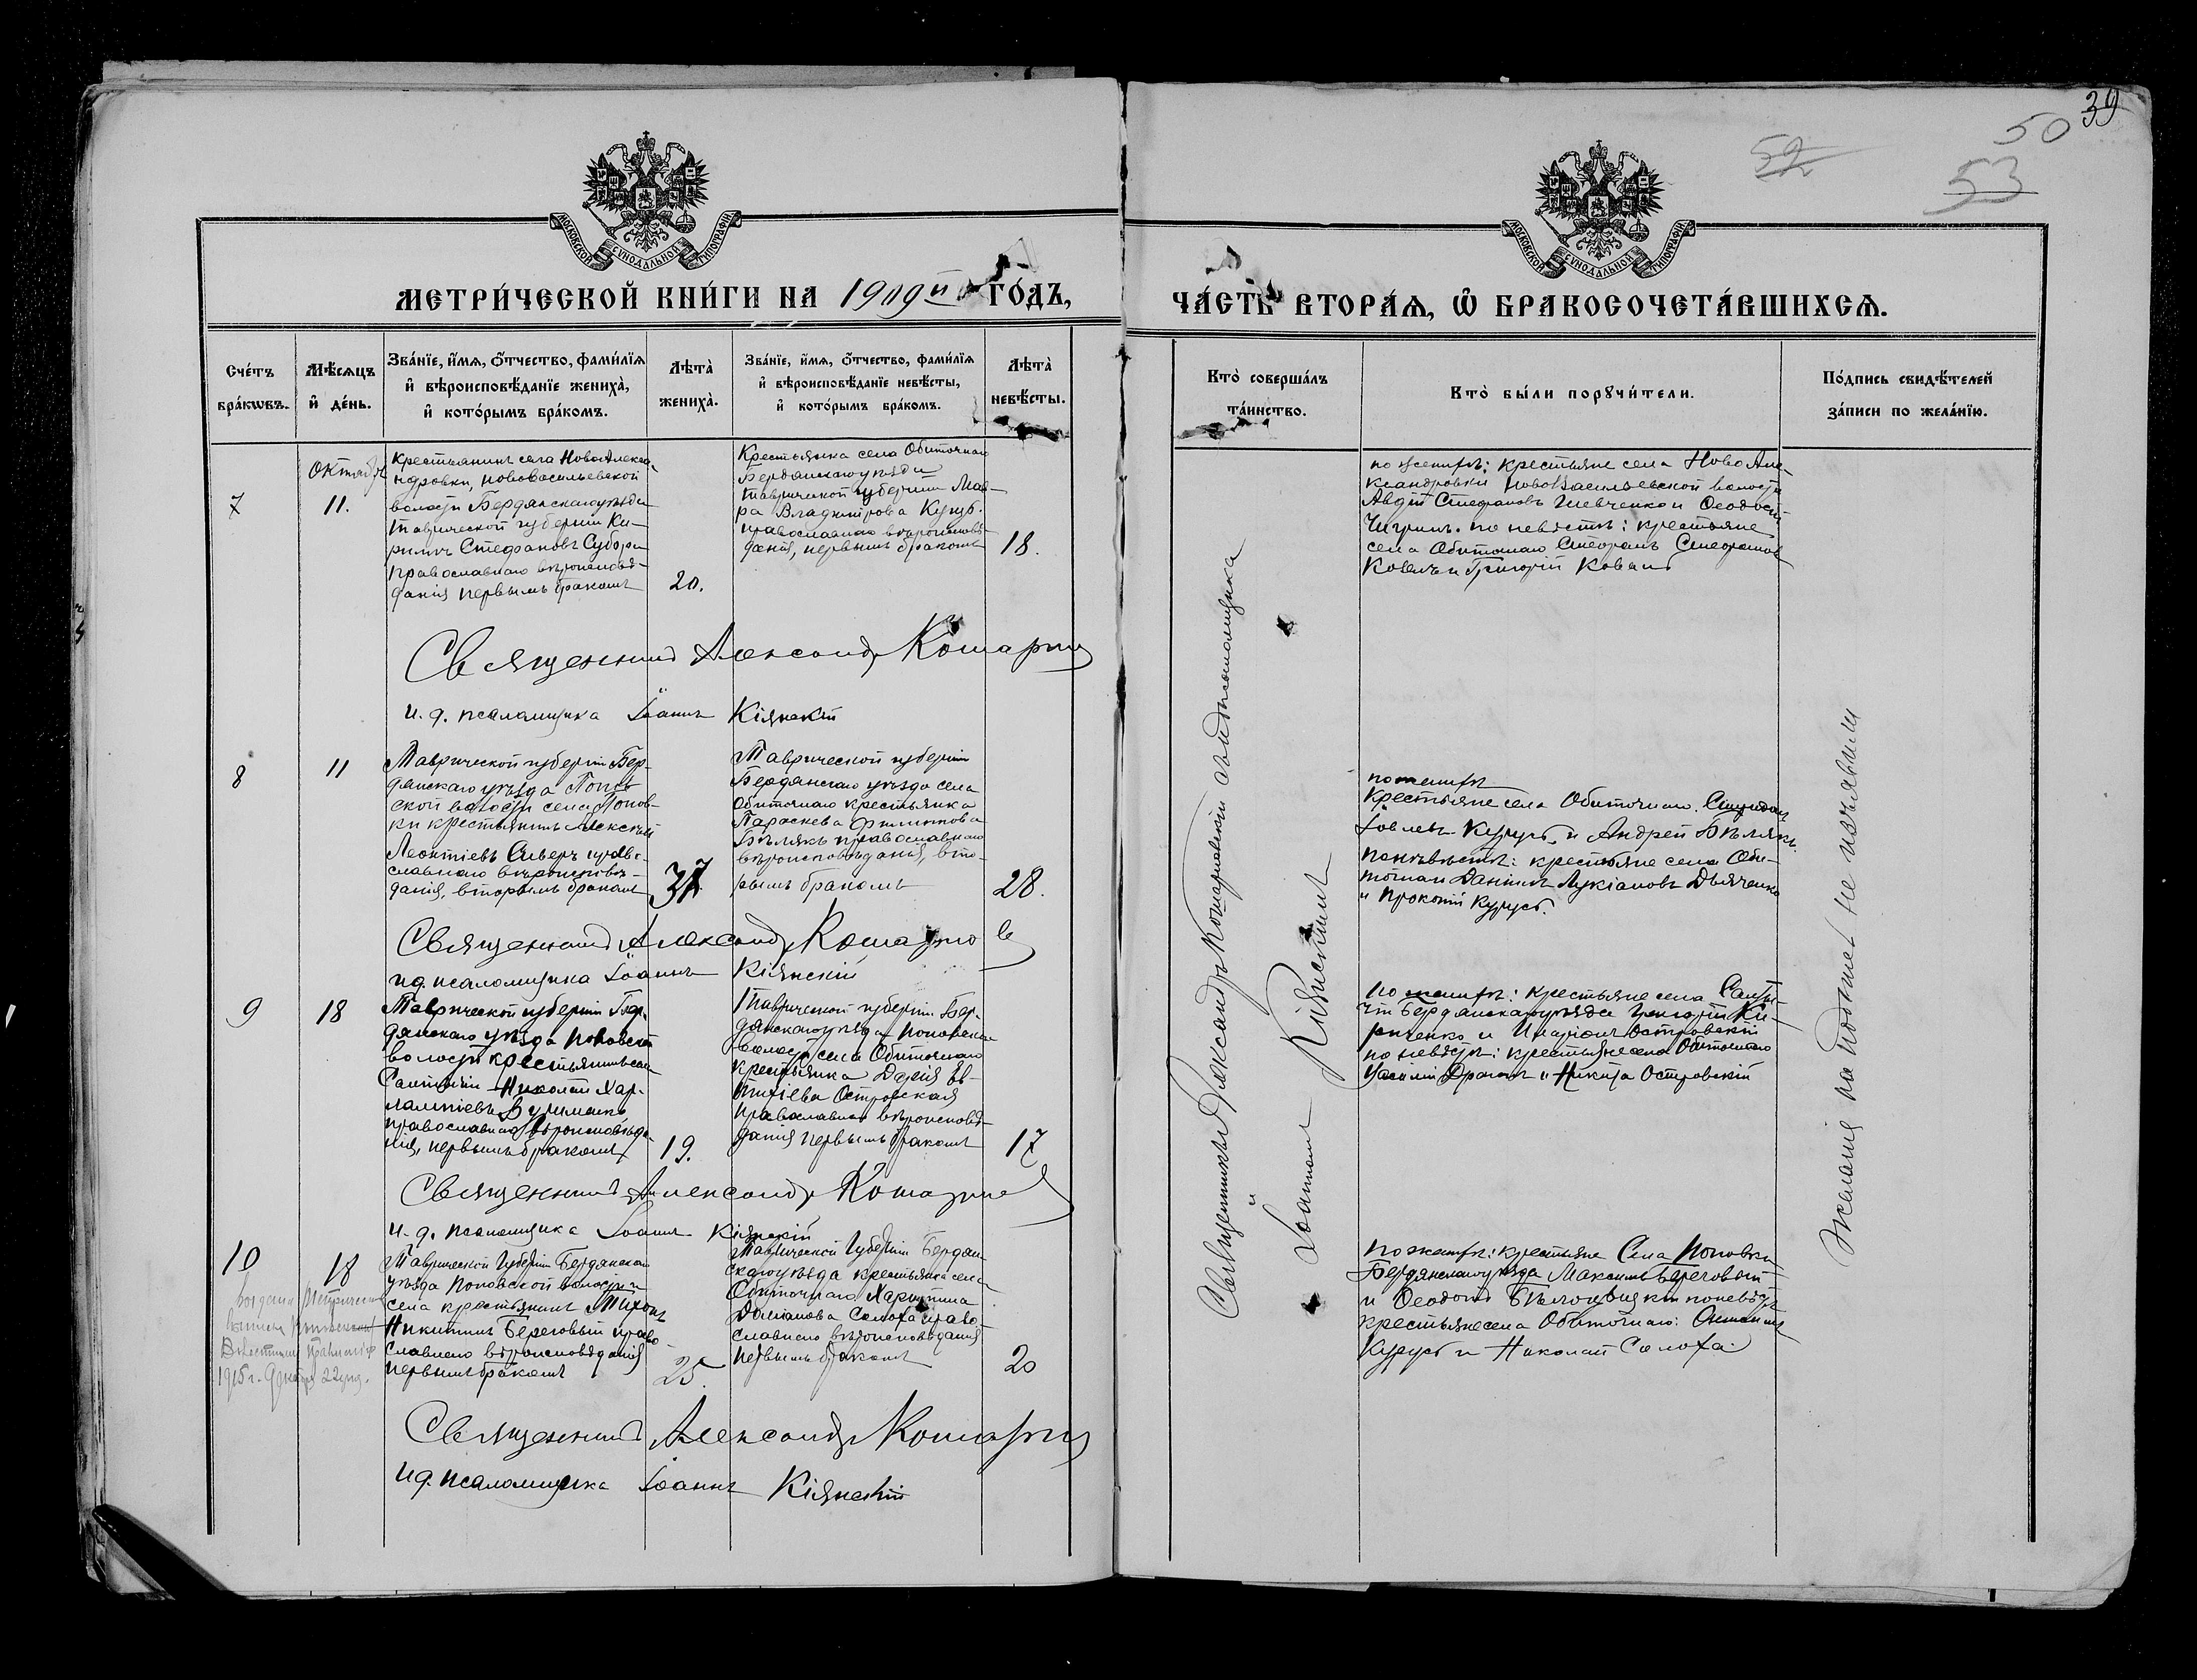 39
50
52
53
МОСКОВСКОЙ СΥНОДАЛЬНОЙ ТИПОГРАФІИ
МОСКОВСКОЙ СΥНОДАЛЬНОЙ ТИПОГРАФІИ
МЕТРИ́ЧЕСКОЙ КНИ́ГИ НА 1909й ГО́ДЪ,
ЧА́СТЬ ВТОРА́Ѧ, Ѽ БРАКОСОЧЕТА́ВШИХСѦ.
Сче́тъ
бра́кѡвъ.
Мѣ́сѧцъ
и҆ де́нь.
Зва́нїе, и҆́мѧ, ѻ҆́тчество, фами́лїѧ
и҆ вѣроисповѣ́данїе жениха̀,
и҆ кото́рымъ бра́комъ.
Лѣта̀
жениха̀.
Зва́нїе, и҆́мѧ, ѻ҆́тчество, фами́лїѧ
и҆ вѣроисповѣ́данїе невѣ́сты,
и҆ кото́рымъ бра́комъ.
Лѣта̀
невѣ́сты.
Кто̀ соверша́лъ
та́инство.
Кто̀ бы́ли порꙋчи́тели.
По́дпись свидѣ́телей
за́писи по жела́нїю.
7
Октября
11.
Крестьянинъ села НовоАлекса-
ндровки, Нововасильевской
волости Бердянскаго уѣзда
Таврической губерніи Ки-
риллъ Стефановъ
православнаго вѣроисповѣ-
данія первымъ бракомъ
20.
Крестьянка села Обиточнаго
Бердянскаго уѣзда
Таврической губерніи Мав-
ра Владимірова
православнаго вѣроисповѣ-
данія, первымъ бракомъ
18.
по женихѣ: крестьяне села НовоАле-
ксандровки НовоВасильевской волости
Авдій Стефановъ Шевченко и Ѳеодосій
Чигринъ. по невѣстѣ: крестьяне
села Обиточнаго Стефанъ Стефановъ
Коваль и Григорій Коваль
Священникъ Александръ Комар
и. д. псаломщика Іоаннъ Кіянскій
8
11
Таврической губерніи Бер-
дянскаго уѣзда Попов-
ской волости села Попов-
ки крестьянинъ Алексѣй
Леонтіевъ право-
славнаго вѣроисповѣ-
данія, вторымъ бракомъ
37
Таврической губерніи
Бердянскаго уѣзда села
Обиточнаго крестьянка
Параскева Филиппова
Бѣлякъ православнаго
вѣроисповѣданія, вто-
рымъ бракомъ
28.
по женихѣ
Крестьяне села Обиточнаго. Спиридонъ
Іовлевъ Курусъ и Андрей Бѣлякъ.
по невѣстѣ: крестьяне села Оби-
точнаго Даніилъ Лукіановъ Дьяченко
и Прокопій Курусъ.
Священникъ Александръ Комар
и.д. псаломщика Іоаннъ Кіянскій
9
18
Таврической губерніи Бер-
дянскаго уѣзда Поповской
волости крестьянинъ села
Салтычіи Николай Хар-
лампіевъ
православнаго вѣроисповѣда-
нія, первымъ бракомъ
19.
Таврической губерніи Бер-
данскаго уѣзда Поповской
волости села Обиточнаго
крестьянка Дарія Ев-
Островская
православнаго вѣроисповѣ-
данія первымъ бракомъ
17
по женихѣ: крестьяне села Салты-
чіи Бердянскаго уѣзда Григорій Ки-
риченко и Иларіонъ Островскій
по невѣстѣ: крестьяне села Обиточнаго
Василій и Никита Островскій
Священникъ Александръ Комар
и. д. псаломщика Іоаннъ Кіянскій
10
18
Таврической Губерніи Бердянскаго
уѣзда Поповской волости
села крестьянинъ Тихонъ
Никитинъ Береговый право-
славнаго вѣроисповѣданія
первымъ бракомъ
25.
Таврической Губерніи Бердян-
скаго уѣзда крестьянка села
Обиточнаго Харитина
Даміанова Солоха право-
славнаго вѣроисповѣданія
первымъ бракомъ
20
по женихѣ: крестьяне Села Поповки
Бердянскаго уѣзда Максимъ Береговый
и Ѳеодотъ по невѣстѣ
крестьяне села Обиточнаго:
Курусъ и Николай Солоха.
1915 г.
Священникъ Александръ Комар
и.д. псаломщика Іоаннъ Кіянскій
Священникъ Александръ Комаревскій
и Іоанномъ Кіянскимъ
Желанія на подпись не изъявили